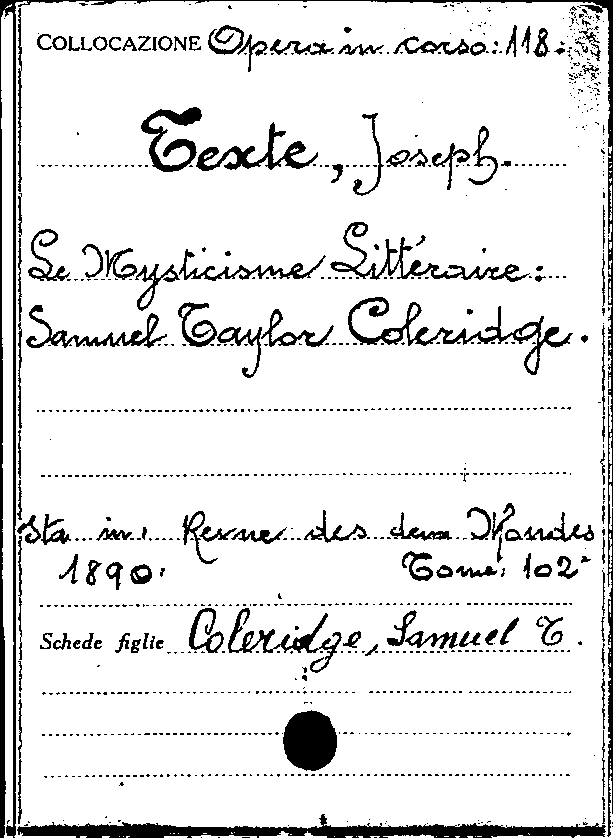 COLLOCAZIONE Opera in corso: 118.
Texte, Joseph.
Le Mysticisme Littéraire:
Samuel Taylor Coleridge.
Sta in: Revue des deux Mondes
1890. Tome: 102
Schede figlie Coleridge, Samuel T.